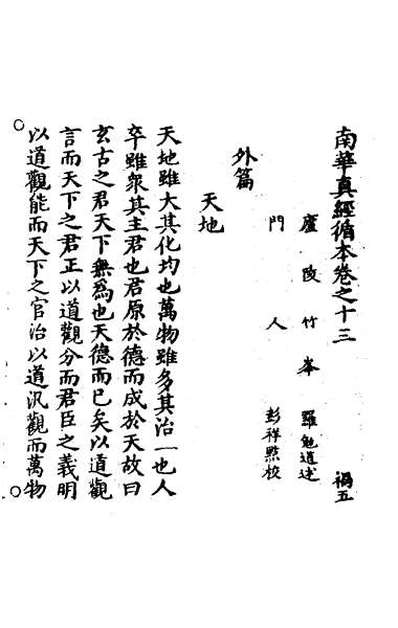 南華真經循本卷之十三 禍五
廬陵竹峯 羅勉道述
門人 彭祥點校
外篇
天地
天地雖大其化均也萬物雖多其治一也人
卒雖衆其主君也君原於德而成於天故曰
玄古之君天下無為也天德而已矣以道觀
言而天下之君正以道觀分而君臣之義明
以道觀能而天下之官治以道汎觀而萬物